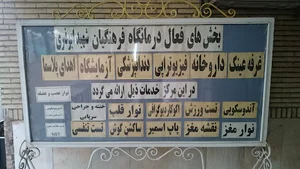 بخش های فعال درمانگاه فرهنگیان شهید
غرفه عینک داروخانه فیزیوتراپی دندانپزشکی آزمایشگاه اهدای پلاسما
در این مرکز خدمات ذیل ارائه می گردد
نوار عصب و عضله
آندوسکوپی تست ورزش اکوکاردیوگرافی نوار قلب ختنه و جراحی سرپایی
نوار مغز نقشه مغز پاپ اسمیر ساکشن گوش تست تنفسی